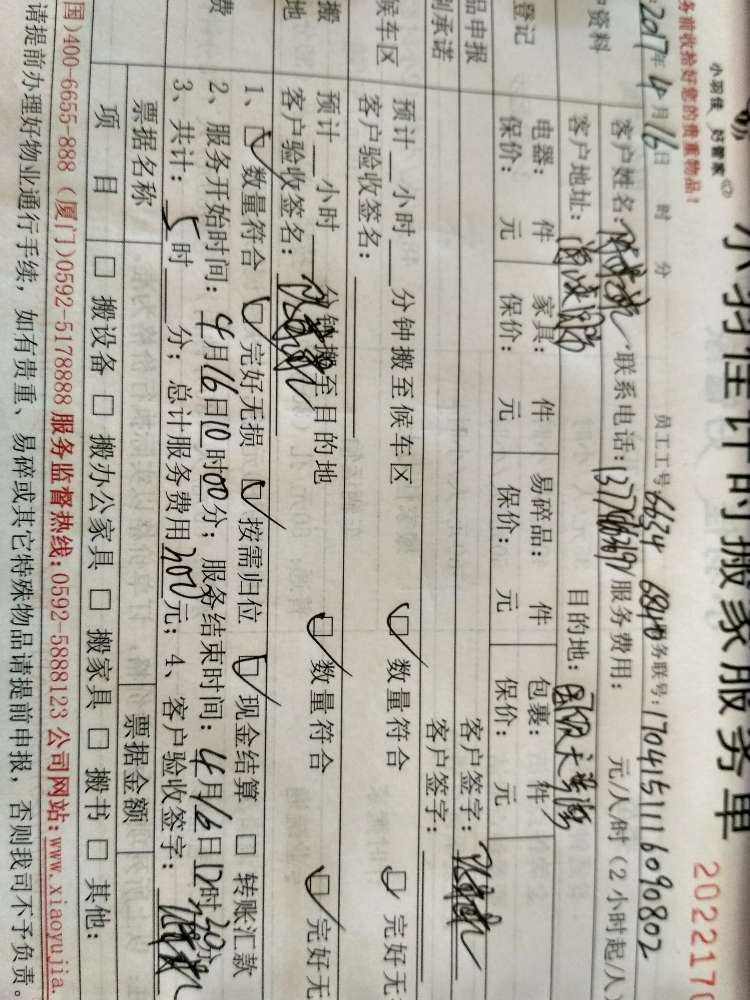 小羽佳计时搬家服务单
小羽佳 好管家
务前收拾好您的贵重物品！
2022170
2017年4月16日 时 分 员工工号 6634 6840 务联号：17041511116090802
资料 客户姓名： 联系电话： 服务费用： 元/人/时（2小时起/人
客户地址： 目的地：
登记 电器： 件 家具： 件 易碎品： 件 包裹： 件
保价： 元 保价： 元 保价： 元 保价： 元
品申报 客户签字：
承诺 客户签字：
候车区 预计 小时 分钟搬至候车区 数量符合 完好无
客户验收签名：
搬 预计 小时 分钟搬至目的地 数量符合 完好无
地 客户验收签名：
1、 数量符合 完好无损 按需归位 现金结算 转账汇款
费 2、服务开始时间：4月16日10时00分；服务结束时间：4月16日 时 分
3、共计：5时 分；总计服务费用 元；4、客户验收签字：
票据名称 票据金额
项 目 搬设备 搬办公家具 搬家具 搬书 其他：
国）400-6655-888（厦门）0592-5178888 服务监督热线：0592-5888123 公司网站：www.xiaoyujia.
请提前办理好物业通行手续，如有贵重、易碎或其它特殊物品请提前申报，否则我司不予负责。